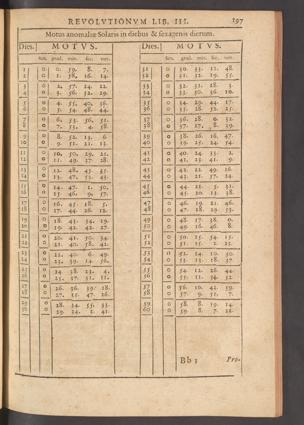 REVOLUTIONVM LIB. III. 197
Motus anomaliæ Solaris in diebus & sexagenis dierum.
Dies. MOTVS. Dies. MOTVS.
Sex. grad. min. sec. ter. Sex. grad. min. sec. ter.
1 0 0. 59. 8. 7. 31 0 30. 33. 11. 48.
2 0 1. 58. 16. 14. 32 0 31. 32. 19. 55.
3 0 2. 57. 24. 22. 33 0 32. 31. 28. 3.
4 0 3. 56. 32. 29. 34 0 33. 30. 36. 10.
5 0 4. 55. 40. 36. 35 0 34. 29. 44. 17.
6 0 5. 54. 48. 44. 36 0 35. 28. 52. 25.
7 0 6. 53. 56. 51. 37 0 36. 28. 0. 32.
8 0 7. 53. 4. 58. 38 0 37. 27. 8. 39.
9 0 8. 52. 13. 6. 39 0 38. 26. 16. 47.
10 0 9. 51. 21. 13. 40 0 39. 25. 24. 54.
11 0 10. 50. 29. 21. 41 0 40. 24. 33. 2.
12 0 11. 49. 37. 28. 42 0 41. 23. 41. 9.
13 0 12. 48. 45. 35. 43 0 42. 22. 49. 16.
14 0 13. 47. 53. 43. 44 0 43. 21. 57. 24.
15 0 14. 47. 1. 50. 45 0 44. 21. 5. 31.
16 0 15. 46. 9. 57. 46 0 45. 20. 13. 38.
17 0 16. 45. 18. 5. 47 0 46. 19. 21. 46.
18 0 17. 44. 26. 12. 48 0 47. 18. 29. 53.
19 0 18. 43. 34. 19. 49 0 48. 17. 38. 0.
20 0 19. 42. 42. 27. 50 0 49. 16. 46. 8.
21 0 20. 41. 50. 34. 51 0 50. 15. 54. 15.
22 0 21. 40. 58. 42. 52 0 51. 15. 2. 23.
23 0 22. 40. 6. 49. 53 0 52. 14. 10. 30.
24 0 23. 39. 14. 56. 54 0 53. 13. 18. 37.
25 0 24. 38. 23. 4. 55 0 54. 12. 26. 44.
26 0 25. 37. 31. 11. 56 0 55. 11. 34. 52.
27 0 26. 36. 39. 18. 57 0 56. 10. 42. 59.
28 0 27. 35. 47. 26. 58 0 57. 9. 51. 7.
29 0 28. 34. 55. 33. 59 0 58. 8. 59. 14.
30 0 29. 34. 3. 41. 60 0 59. 8. 7. 22.
Bb 3 Pro-